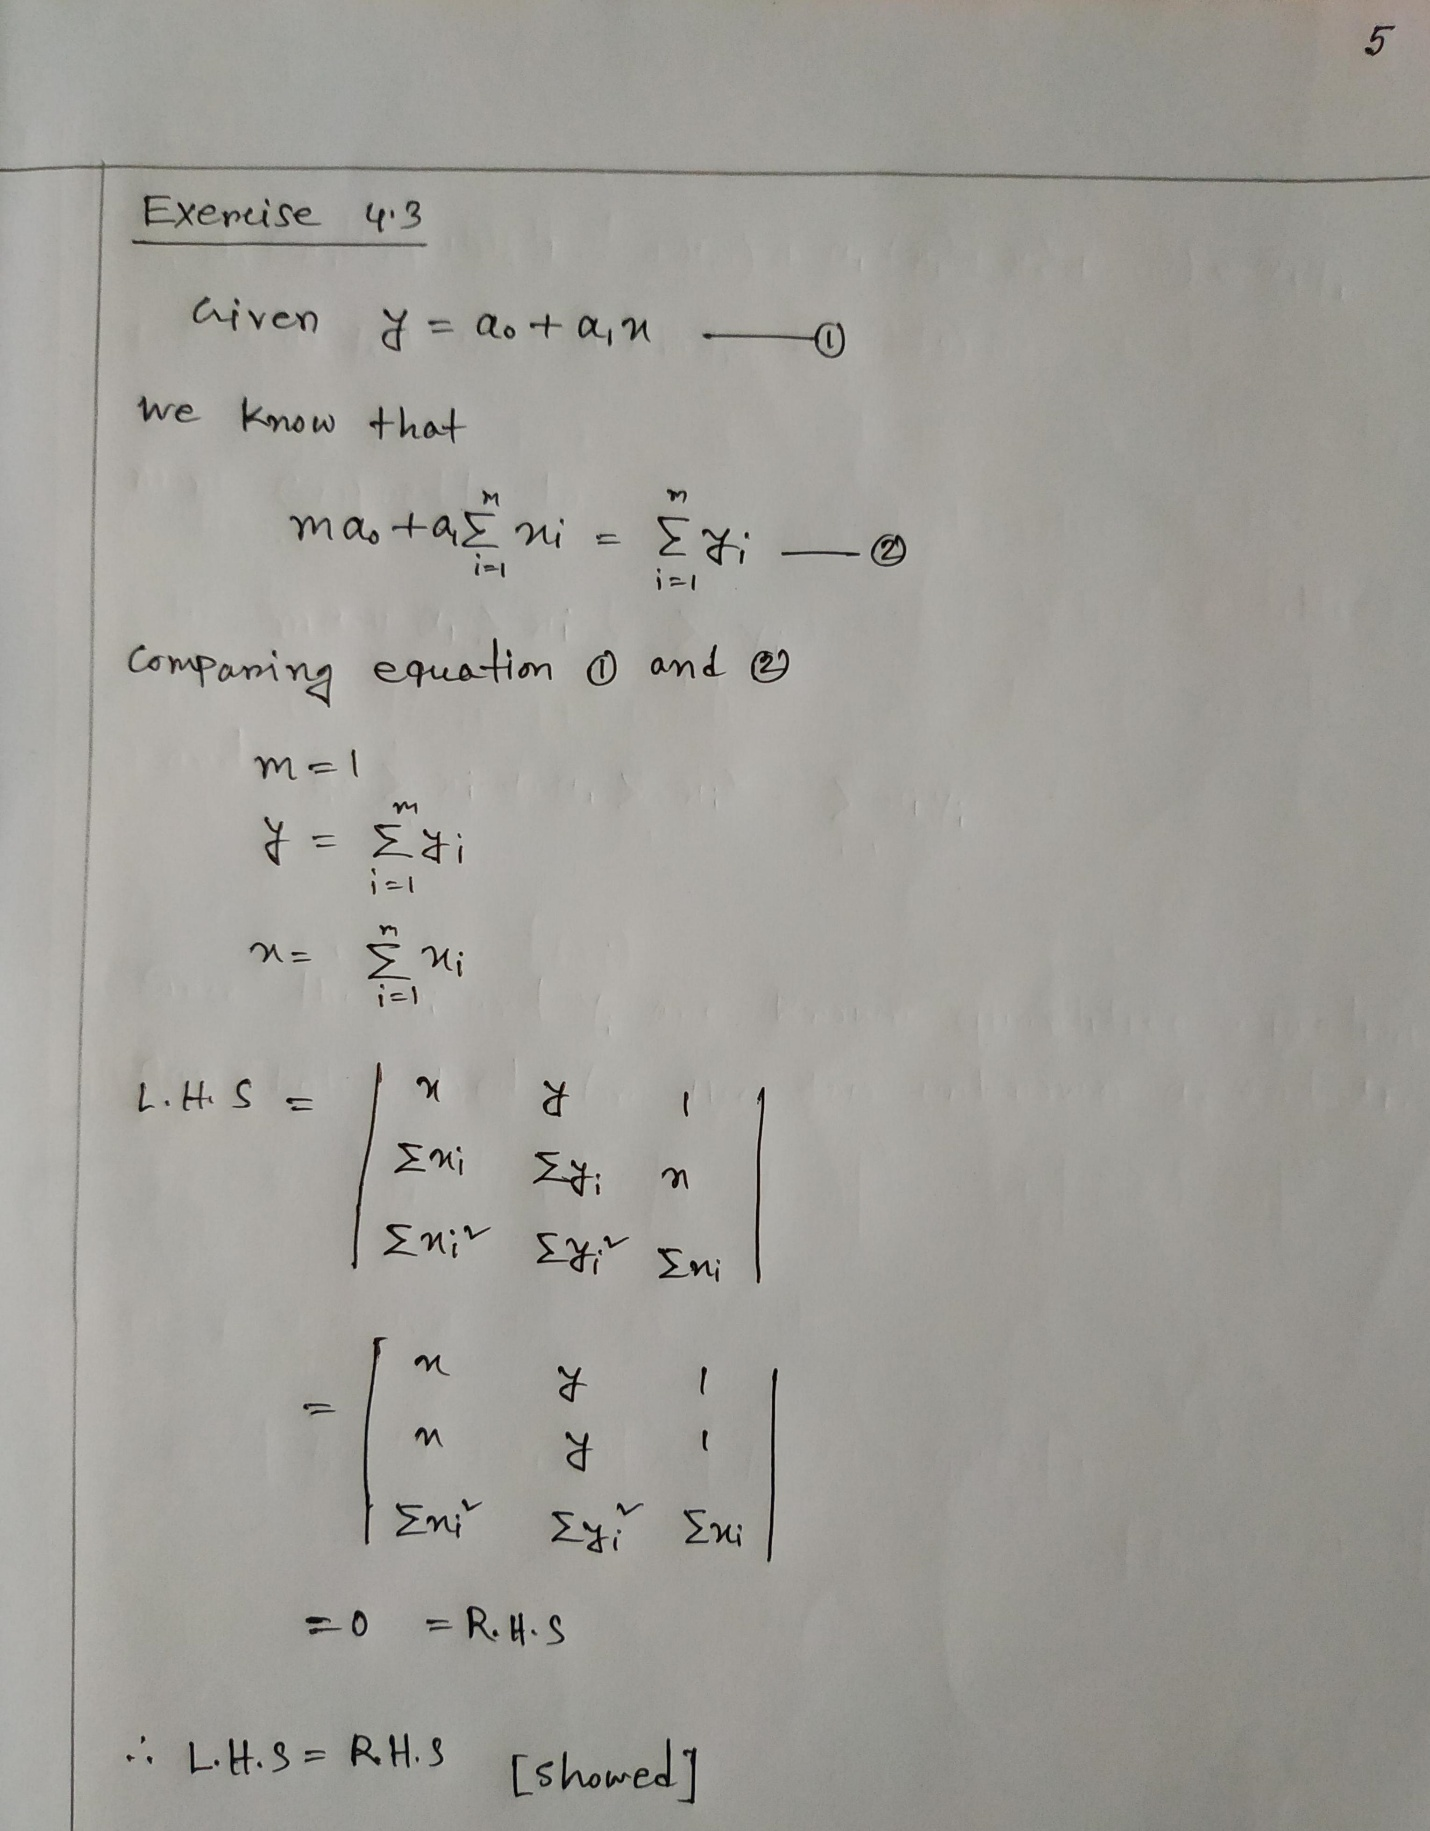 5
Exercise 4.3
Given y = a₀ + a₁x —— ①
We know that
ma₀ + a₁ Σᵢ₌₁ᵐ xᵢ = Σᵢ₌₁ᵐ yᵢ —— ②
Comparing equation ① and ②
m = 1
y = Σᵢ₌₁ᵐ yᵢ
x = Σᵢ₌₁ᵐ xᵢ
L.H.S = | x y 1 |
| Σxᵢ Σyᵢ n |
| Σxᵢ² Σyᵢ² Σxᵢ |
= | x y 1 |
| x y 1 |
| Σxᵢ² Σyᵢ² Σxᵢ |
= 0 = R.H.S
∴ L.H.S = R.H.S [showed]